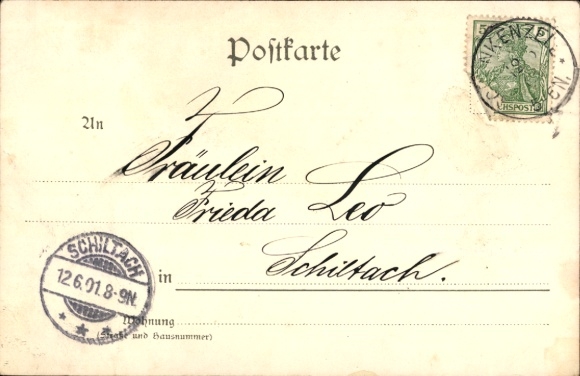 Postkarte
An
Fräulein
Frieda Leo
in Schiltach.
Wohnung
(Straße und Hausnummer)
SCHILTACH
12.6.01.8-9N.